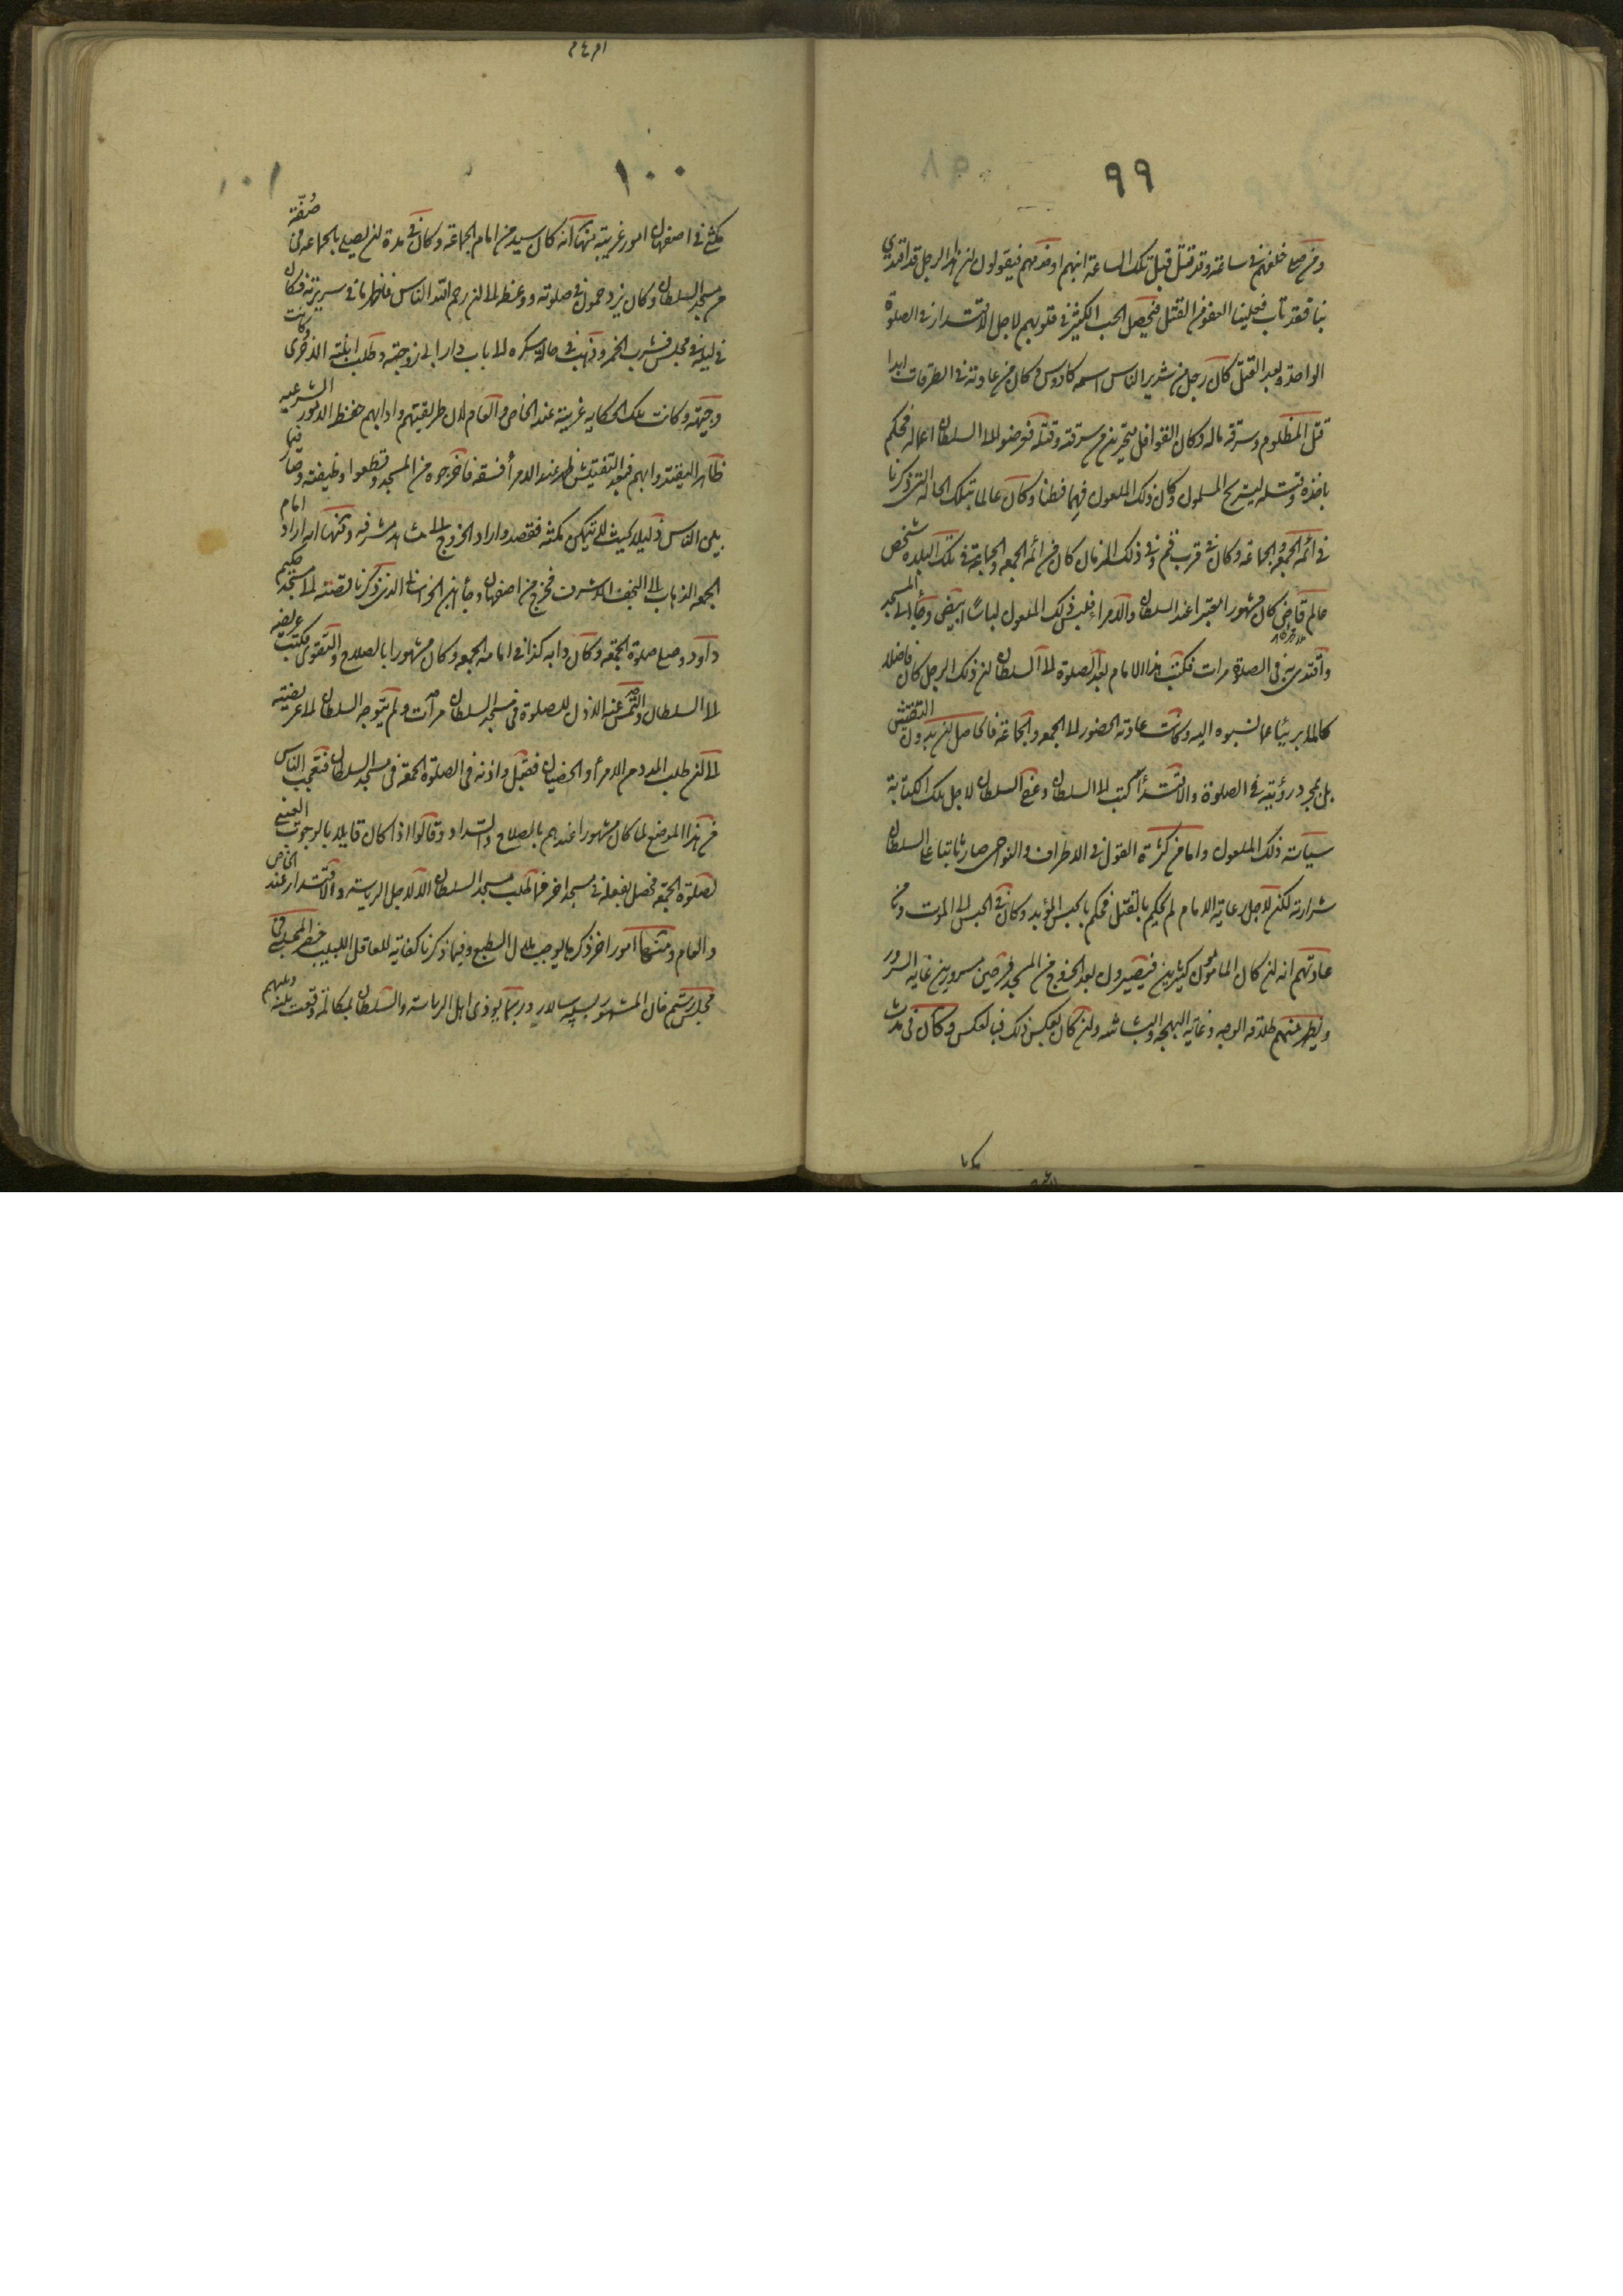 ٩٩
ومن صلى خلفهم في ساعة وقد قتل قبل تلك الساعة ابنهم او خدمهم فيقولون ان هذا الرجل قد اقتدى
بنا فقد تاب فعلينا العفو من القتل فيحصل الحب الكثير في قلوبهم لاجل الاقتداء في الصلوة
الواحدة وبعد القتل كان رجل من شرير الناس اسمه كادوس وكان من عادته في الطرقات ابدا
قتل المظلوم وسرقة ماله وكان القوافل متحيرين من سرقته وقتله فعرضوا الى السلطان اعماله فحكم
باخذه وقتله ليستريح المسلمون وكان ذلك الملعون فهما فطنا وكان عالما بتلك الحالة التي ذكرنا
في ائمة الجمعة والجماعة وكان في قرب قم وفي ذلك الزمان كان من ائمة الجمعة والجماعة في تلك البلدة شخص
عالم قاضي كان مشهورا معتبرا عند السلطان والامراء فلبس ذلك الملعون لباسا ابيض وجاء الى المسجد
واقتدى به في الصلاة مرات فكتب هذا الامام بعد الصلوة الى السلطان ان ذلك الرجل كان فاضلا
كاملا بريئا عما نسبوه اليه وكانت عادته الحضور الى الجمعة والجماعة فالحاصل ان بدون التفتيش
بل بمجرد رؤيته في الصلوة والاقتداء كتب الى السلطان وعفى السلطان لاجل تلك الكتابة
سيآت ذلك الملعون واما من كثرة القول في الاطراف والنواحي صار ثابتا عند السلطان
شرارته لكن لاجل رعاية الامام لم يحكم بالقتل فحكم بالحبس المؤبد وكان في الحبس الى الموت ومن
عادتهم انه ان كان المأمون كثيرين فيصيرون بعد الخروج من المسجد فرحين مسرورين غاية السرور
ويظهر منهم طلاقة الوجه وغاية البهجة والبشاشة وان كان بعكس ذلك فبالعكس وكان في مدة
١٠٠
مكثي في اصفهان امور غريبة منها انه كان سيد من امام الجماعة وكان في مدة ان يصلي بالجماعة في صفة
من مسجد السلطان وكان يزدحمون في صلوته ووعظه الى ان رحم الله الناس فاظهر ما في سريرته فكان
في ليلة في مجلس فشرب الخمر وذهب في حالة سكره الى باب دار ابي زوجته وطلب ابنته الاخرى وكانت
وجيهة وكانت تلك الحكاية غريبة عند الخاص والعام لان طريقتهم وادابهم حفظ الامور الشرعية
ظاهرا ليقتدوا بهم فبعد التفتيش ظهر عند الامراء فسقه فاخرجوه من المسجد وقطعوا وظيفته وصار فيما
بين الناس ذليلا بحيث لم يتمكن مكثه فقصد واراد الخروج الى مشاهد مشرفة ومنها انه اراد امام
الجمعة الذهاب الى النجف الاشرف فخرج من اصفهان وجاء ابن الخراساني الذي ذكرنا قصته الى مسجد حكيم
داود وصلى صلوة الجمعة وكان دأبه كذا في امامة الجمعة وكان مشهورا بالصلاح والتقوى فكتب عريضة
الى السلطان والتمس منه الاذن للصلوة في مسجد السلطان مرات ولم يتوجه السلطان الى عريضته
الى ان طلب المدد من الامراء والخصيان فقبل واذنه في الصلوة الجمعة في مسجد السلطان فتعجب الناس
من هذا الموضع لما كان مشهورا عندهم بالصلاح والسداد وقالوا اذا كان قايلا بالوجوب العيني
لصلوة الجمعة فحصل بفعله في مسجد اخر فما طلب مسجد السلطان الا لاجل الرياسة والاقتدار عند الخاص
والعام ومنها امور اخر ذكرها يوجب ملال الطبع وفيما ذكرنا كفاية للعاقل اللبيب حضر المجلسي في
مجلس رستم خان المشهور بسپه سالار وربما يوذى اهل الرياسة والسلطان بمكالمة وقعت بينه وبينهم
١٠١